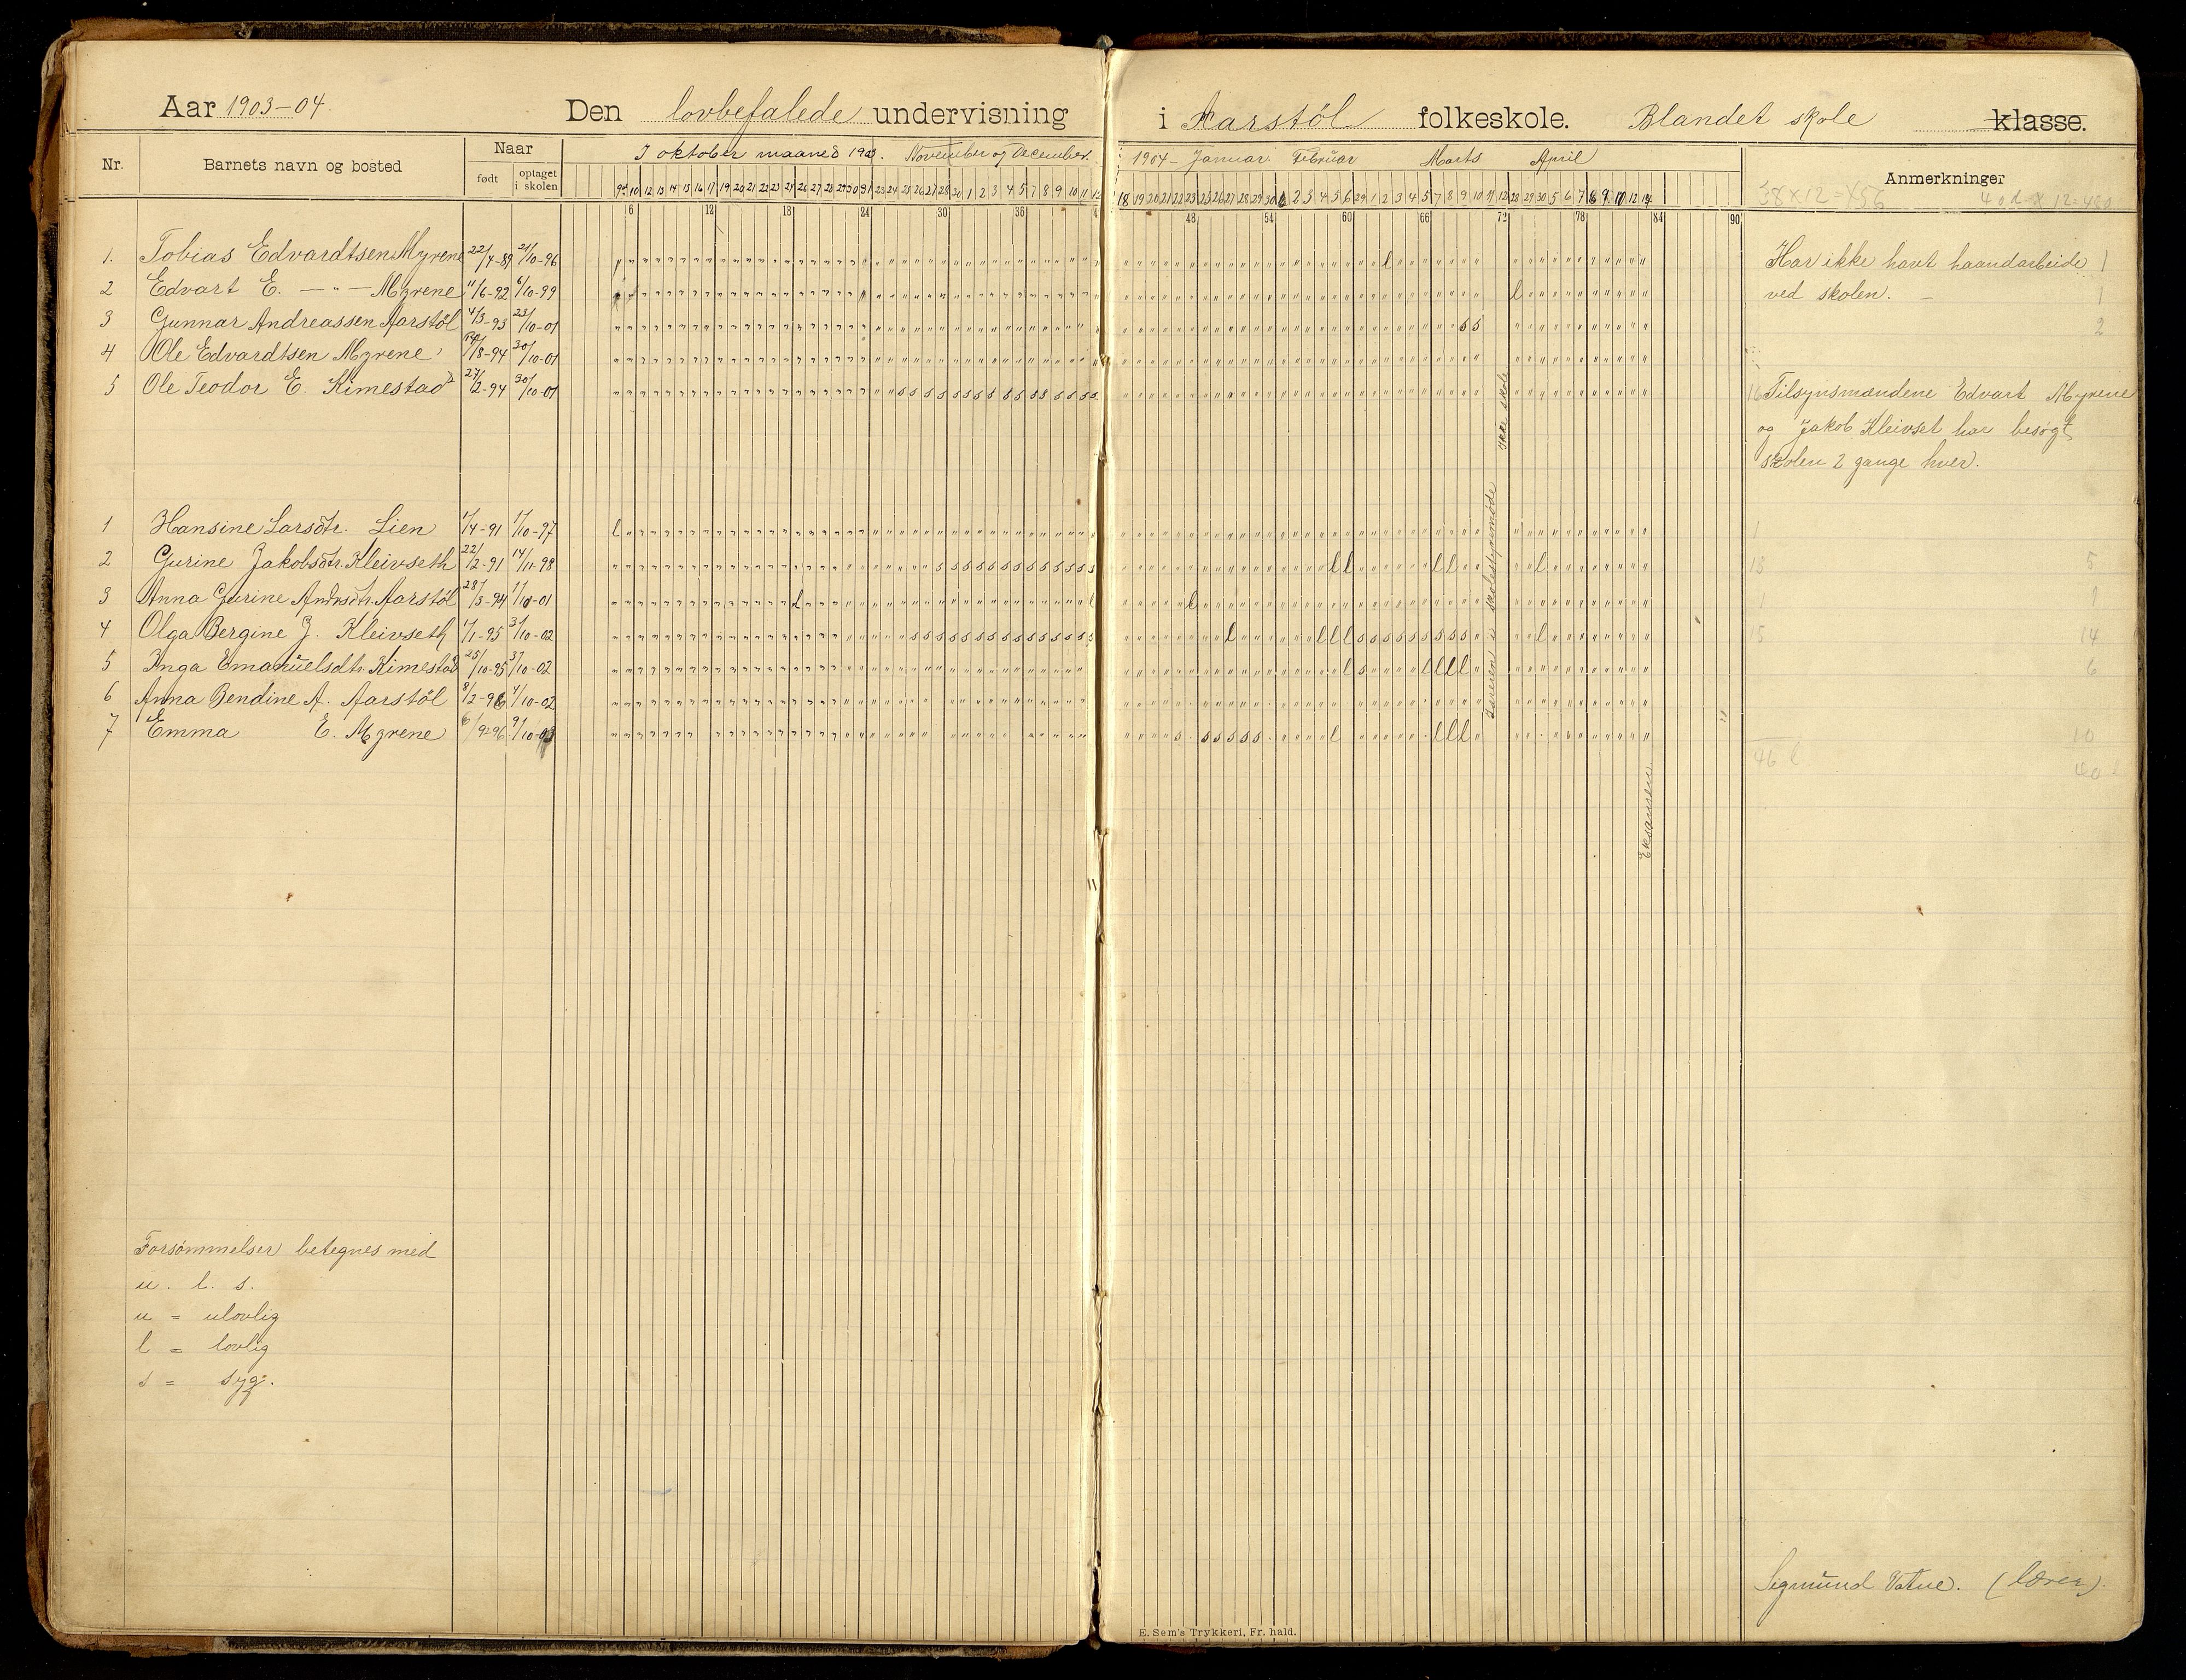 Aar 1903-04. Den lovbefalede undervisning i Aarstöl folkeskole. Blandet skole klasse.
Nr. Barnets navn og bosted Naar født optaget i skolen
I oktober maaned 1903. November og December. 1904 - Januar. Februar Marts April Anmerkninger
9de 10 12 13 14 15 16 17 19 20 21 22 23 24 26 27 28 29 30 31 23 24 25 26 27 28 30 1 2 3 4 5 7 8 9 10 11 12 18 19 20 21 22 23 25 26 27 28 29 30 1 2 3 4 5 6 29 1 2 3 4 5 7 8 9 10 11 12 28 29 30 5 6 7 8 9 10 12 14
38 x 12 = 456 40 d x 12 = 480
6 12 18 24 30 36 4 48 54 60 66 72 78 84 90
1. Tobias Edvardtsen Myrene 22/4-89 21/10-96 l Har ikke havt haandarbeide 1
2 Edvart E. — " — Myrene 11/6-92 6/10-99 l ved skolen. — 1
3 Gunnar Andreassen Aarstöl 4/3-93 23/10-01 s s 2
4 Ole Edvardtsen Myrene 19/8-94 30/10-01
5 Ole Teodor E. Kimestad 27/2-94 30/10-01 s s s s s s s s s s s s s s s s 16 Tilsynsmændene Edvart Myrene
og Jakob Kleivset har besøgt
skolen 2 gange hver.
ikke skole
1 Hansine Larsdtr. Lien 1/4-91 1/10-97 l 1
2 Gurine Jakobsdtr. Kleivseth 22/2-91 14/11-98 s s s s s s s s s s s s s l l l l l 13 5
3 Anna Gurine Andrsdtr. Aarstöl 28/3-94 1/10-01 l l l 1 1
4 Olga Bergine J. Kleivseth 1/1-95 31/10-02 s s s s s s s s s s s s s s s l l l l s s s s s s s s s l 15 14
5 Inga Emanuelsdtr. Kimestad 25/10-95 31/10-02 l s l l l l 6
6 Anna Bendine A. Aarstöl 8/2-96 4/10-02
7 Emma E. Myrene 6/9-96 9/10-03 s s s s s s l l l l 10
Læreren i skolestyremøde
46 l 40
Eksamen
Forsömmelser betegnes med
u. l. s.
u = ulovlig
l = lovlig
s = syg.
Sigmund Vatne. (lærer).
E. Sem's Trykkeri, Fr. hald.